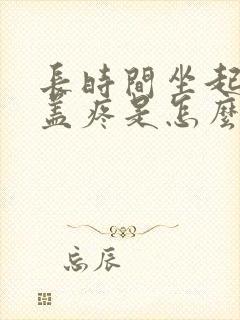 長時間坐起
蓋疼是怎麼
忘辰